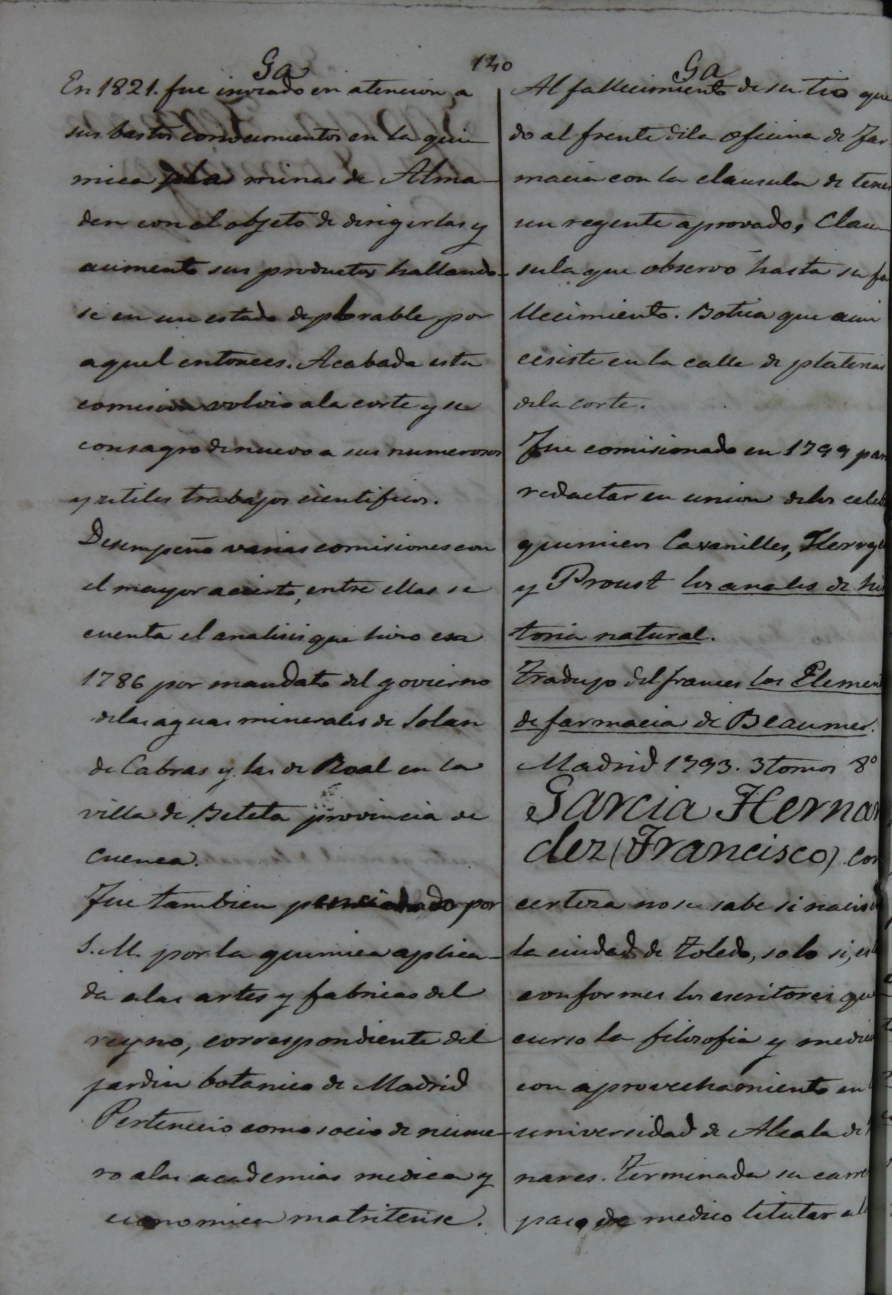 Ga
140
Ga
En 1821. fue inviado en atencion, a
sus bastos conocimientos en la qui-
mica a las minas de Alma-
den con el objeto de dirigirlas y
aumento sus productos hallando-
se en un estado deplorable por
aquel entonces. Acabada esta
comision volvio a la corte y se
consagro de nuevo a sus numerosos
y utiles trabajos cientificos.
Desempeño varias comisiones con
el mayor acierto, entre ellas se
cuenta el analisis que hizo en
1786 por mandato del govierno
delas aguas minerales de Solan
de Cabras y las de Roal en la
villa de Beteta provincia de
Cuenca.
Fue tambien penciado por
S. M. por la quimica aplica-
da a las artes y fabricas del
reyno, correspondiente del
jardin botanico de Madrid
Pertenecio como socio de nume-
ro a las academias medica y
economica matritense.
Al fallecimiento de su tio que
do al frente dela oficina de far
macia con la clausula de tener
un regente aprovado, Clau-
sula que observó hasta su fa
llecimiento. Botica que aun
ecsiste en la calle de platerias
dela corte.
Fue comisionado en 1799 par
redactar en union delos celeb
quimicos Cavanilles, Herrge
y Proust los anales de his
toria natural.
Tradujo del frances los Element
de farmacia de Beaumer.
Madrid 1793. 3 tomos 8º
Garcia Hernan
dez (Francisco). Con
certeza no se sabe si nacio
la ciudad de Toledo, solo si, es
conformes los escritores que
curso la filosofia y medici
con aprovechamiento en
universidad de Alcala de
nares. Terminada su carre
paso, de medico titular al